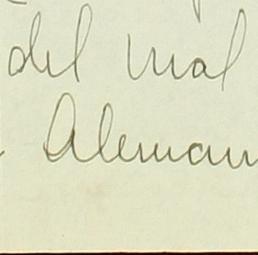 del mal
Aleman